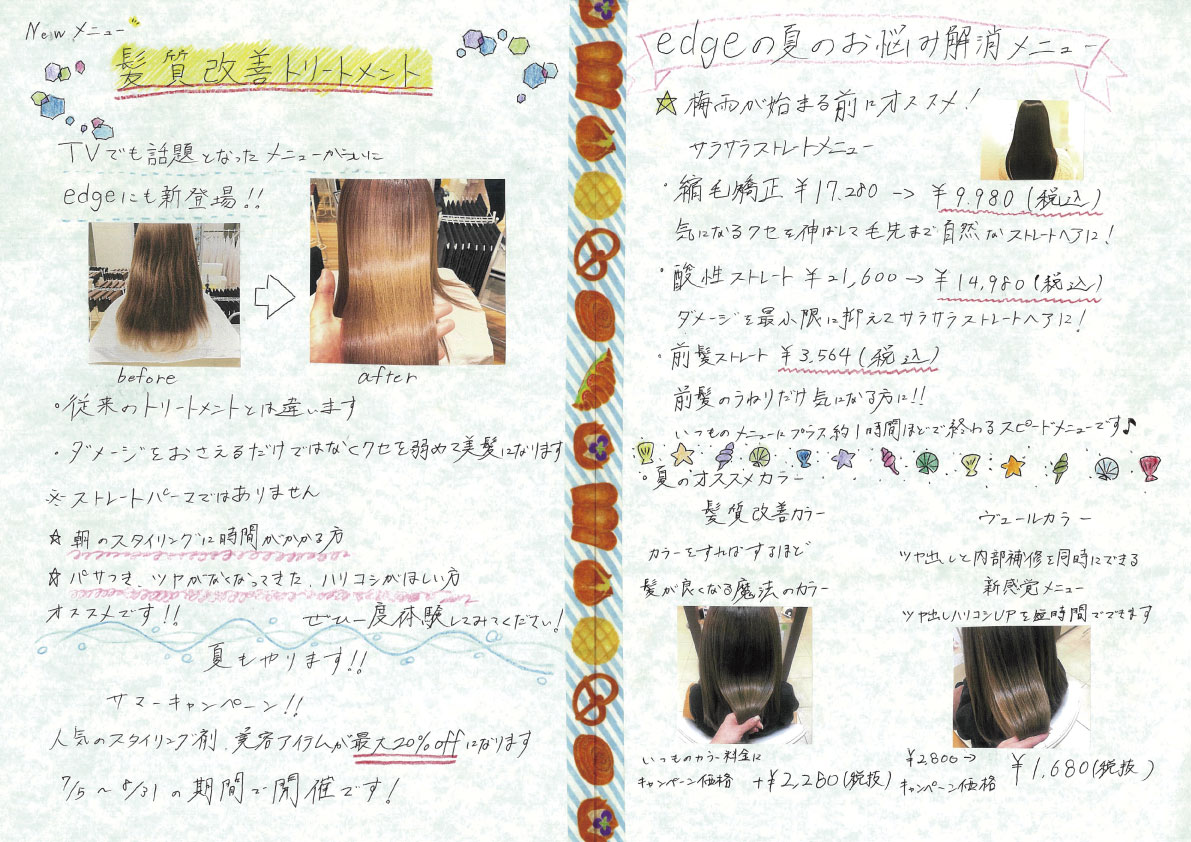 Newメニュー
髪質改善トリートメント
TVでも話題となったメニューがついに
edgeにも新登場!!
before
after
・従来のトリートメントとは違います
・ダメージをおさえるだけではなくクセを弱めて美髪になります
※ストレートパーマではありません
☆朝のスタイリングに時間がかかる方
☆パサつき、ツヤがなくなってきた、ハリコシがほしい方
オススメです!!
ぜひ一度体験してみてください!
夏もやります!!
サマーキャンペーン!!
人気のスタイリング剤、美容アイテムが最大20%offになります
7/5〜8/31の期間で開催です!
edgeの夏のお悩み解消メニュー
☆梅雨が始まる前にオススメ!
サラサラストレートメニュー
・縮毛矯正 ¥17.280→¥9.980(税込)
気になるクセを伸ばして毛先まで自然なストレートヘアに!
・酸性ストレート ¥21,600→¥14,980(税込)
ダメージを最小限に抑えてサラサラストレートヘアに!
・前髪ストレート ¥3,564(税込)
前髪のうねりだけ気になる方に!!
いつものメニューにプラス約1時間ほどで終わるスピードメニューです♪
・夏のオススメカラー
髪質改善カラー
カラーをすればするほど
髪が良くなる魔法のカラー
いつものカラー料金に
キャンペーン価格 +¥2,280(税抜)
ヴェールカラー
ツヤ出しと内部補修を同時にできる
新感覚メニュー
ツヤ出しハリコシUPを短時間でできます
¥2800→
キャンペーン価格 ¥1,680(税抜)